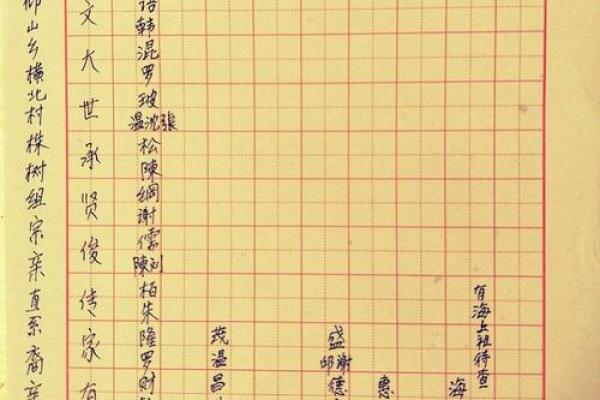 仰山乡横北村株树组宗栾直系裔
文大世承贤俊传家有
语韩混罗玻温沈張松陳綱谢儒陳刘柏朱隆罗财
茂温昌
盛邱谢德
惠
海
有海上祖待查